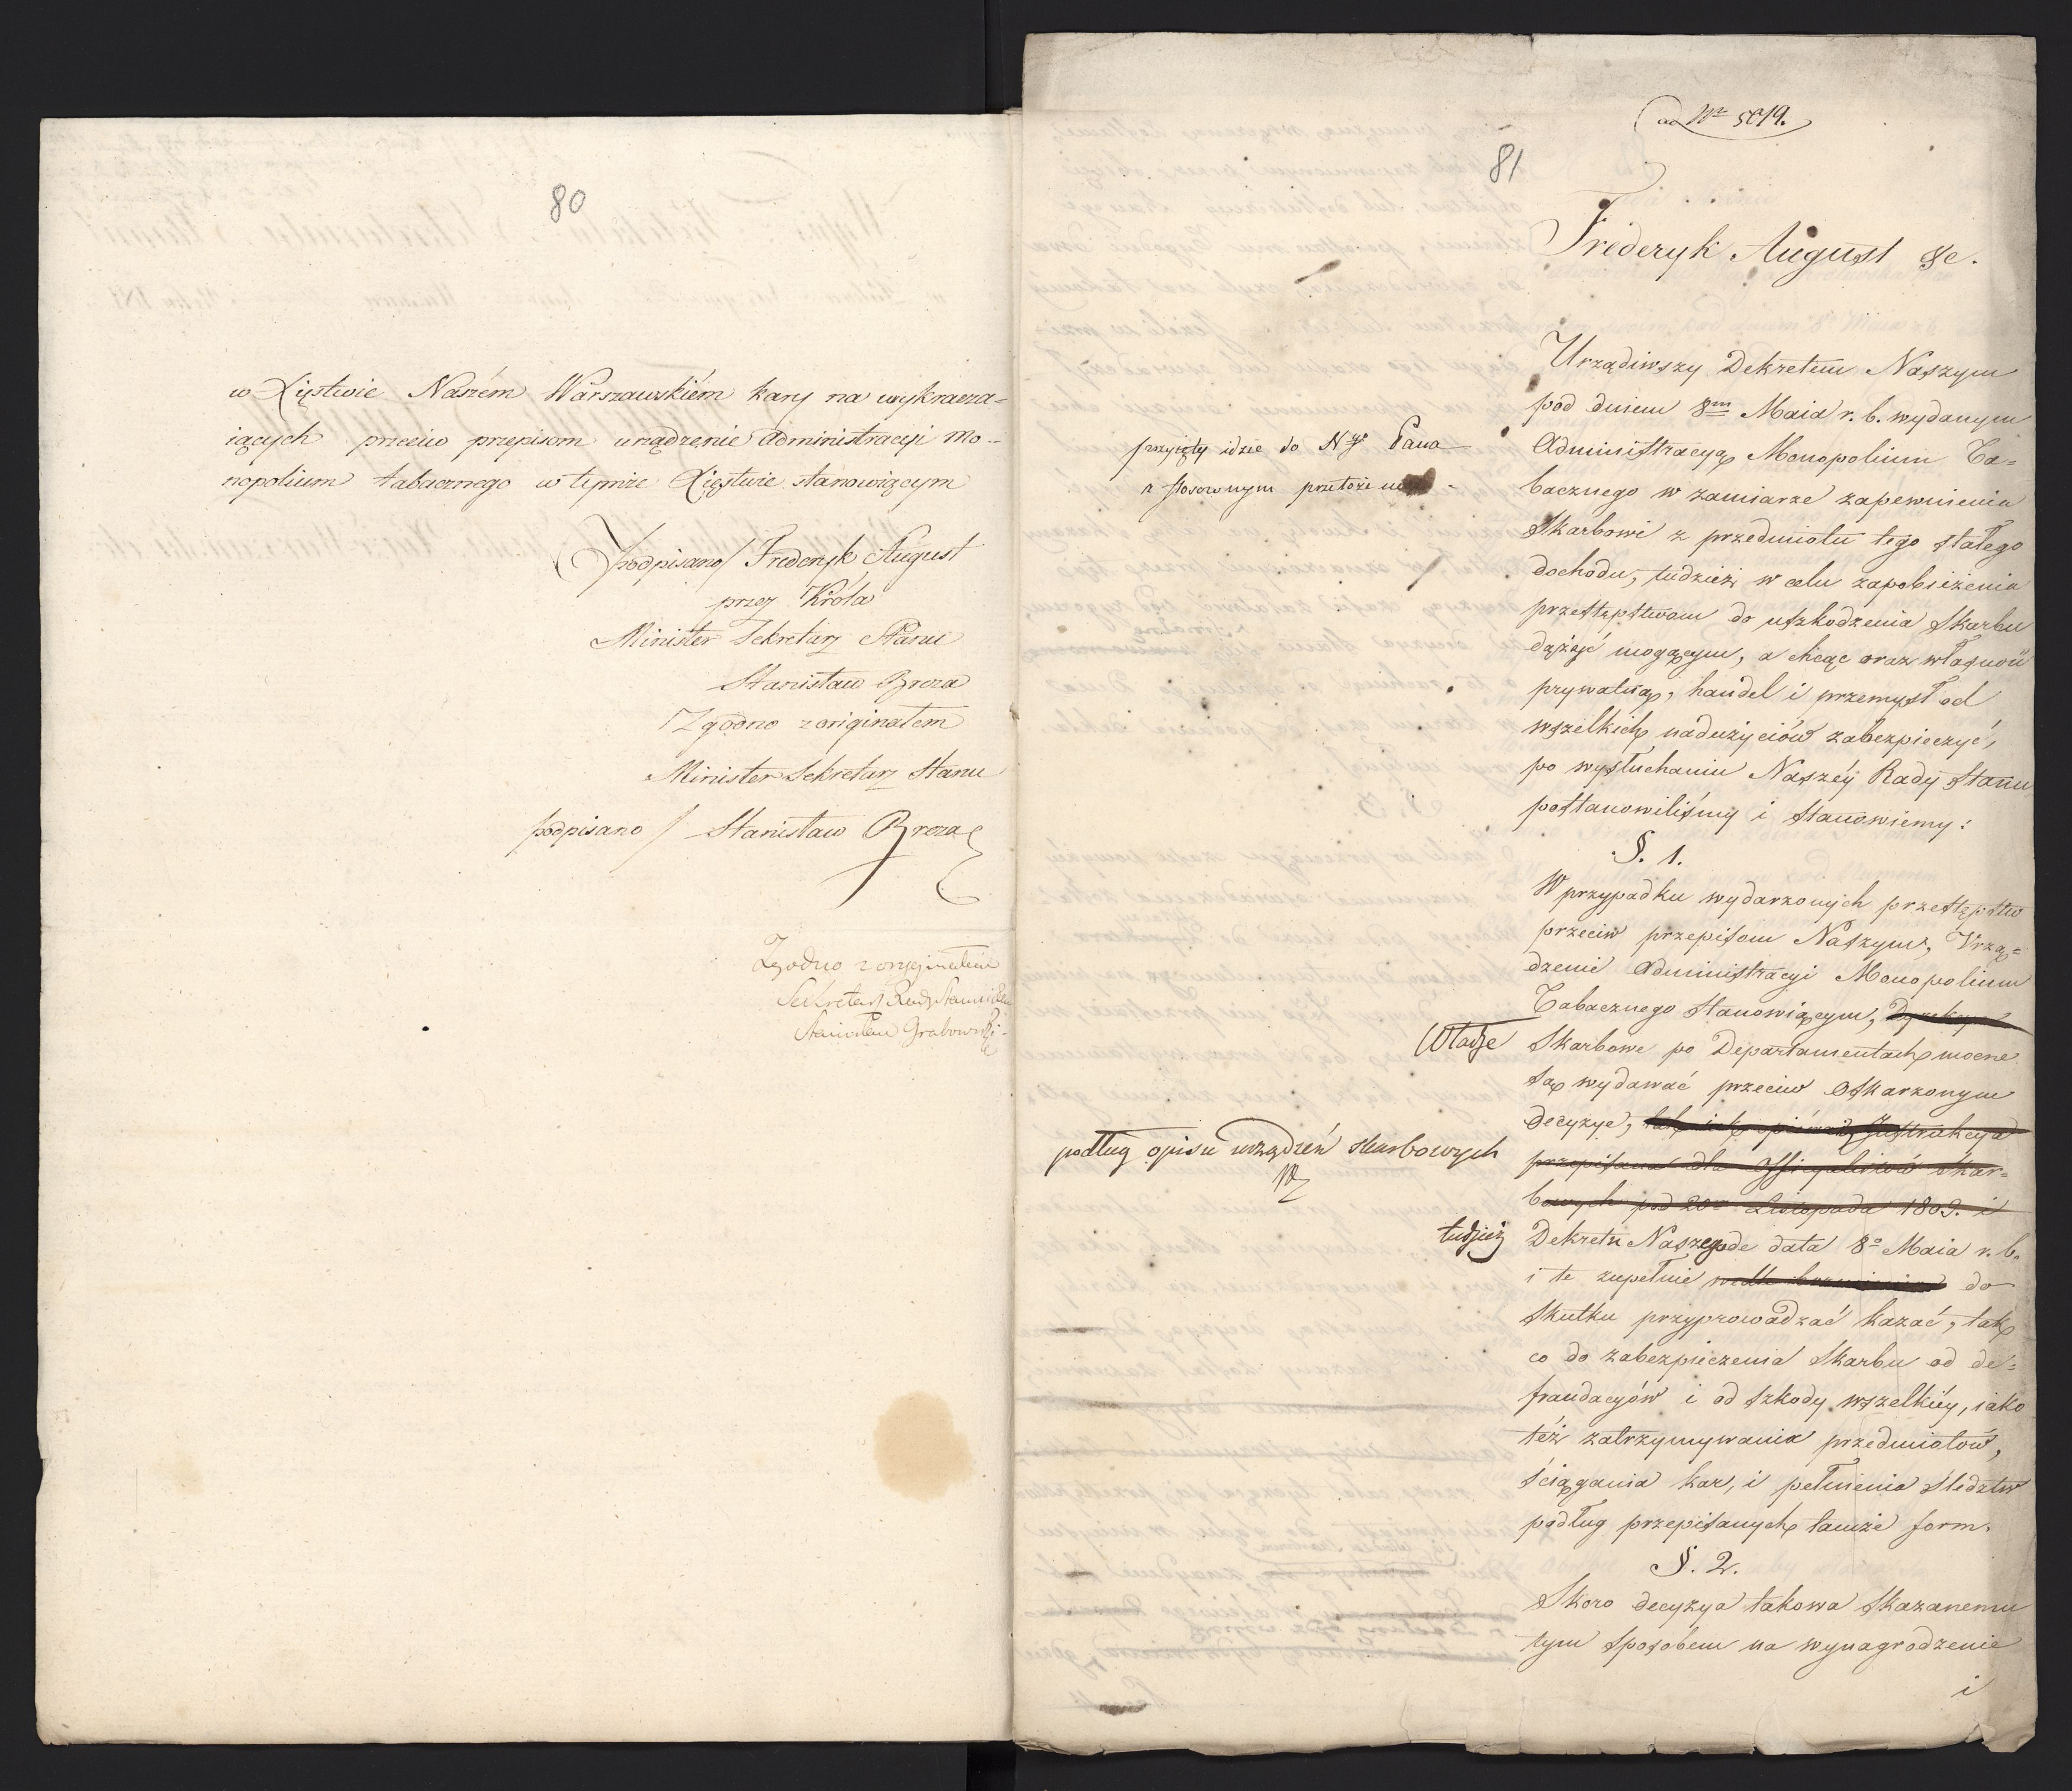 80
w Xięstwie Naszém Warszawskiém kary na wykracza=
iących przeciw przepisom urządzenie administracyi Mo=
nopolium tabacznego w tymże Xięstwie stanowiącym
/podpisano/ Frederyk August
przez Króla
Minister Sekretarz Stanu
Stanisław Breza
Zgodno z originałem
Minister Sekretarz Stanu
podpisano / Stanisław Breza
Zgodno z oryginałem
Sekretarz Rady Stanu
Stanisław Grabowski
ad Nr 5019.
81
Frideryk August &c.
Urządiwszy Dekretem Naszym
pod dniem 8m Maia r. b. wydanym
Administracyą Monopolium Ta=
bacznego w zamiarze zapewnienia
Skarbowi z przedmiotu tego stałego
dochodu, tudzież w celu zapobieżenia
przestępstwom do uszkodzenia Skarbu
dążyć mogącym, a chcąc oraz własność
prywatną, handel i przemysł od
wszelkich nadużyciów zabezpieczyć,
po wysłuchaniu Naszéy Rady Stanu
postanowiliśmy i stanowiemy:
przyięty idzie do Nygo Pana
z stosownym przełożeniem
§. 1.
W przypadku wydarzonych przestępstw
przeciw przepisom Naszym, Urzą=
dzenie Administracyi Monopolium
Tabacznego stanowiącym, Dyrekcye
Władze Skarbowe po Departamentach mocne
są wydawać przeciw Oskarzonym
decyzye, Instrukcya
podług opisu urządzeń skarbowych
przepisana dla Officyalistów Skar=
bowych pod 20 Listopada 1809. i
tudzież Dekretu Naszego de data 8o Maia r. b.
i te zupełnie wedle brzmienia do
skutku przyprowadzać kazać, tak
co do zabezpieczenia Skarbu od de=
fraudacyów i od szkody wszelkiéy, iako
téż zatrzymywania przedmiotów,
ściągania kar, i pełnienia śledztw
podług przepisanych tamże form.
§. 2.
Skoro decyzya takowa skazanemu
tym sposobem na wynagrodzenie
i